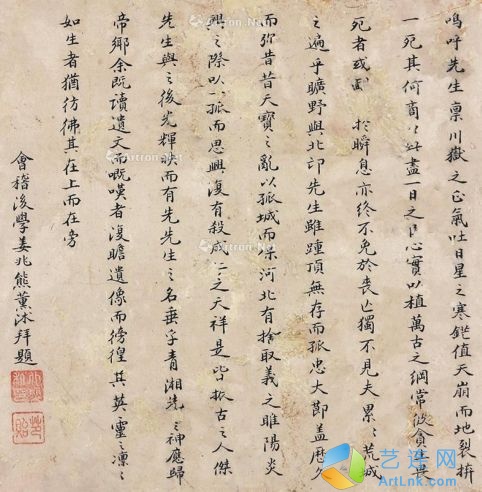 嗚呼先生稟川嶽之正氣吐日星之寒鋩值天崩而地裂拚
一死其何商以盡一日之臣心實以植萬古之綱常彼貪畏
死者或於瞬息亦終不免於喪亡獨不見夫累〻荒城
之遍乎曠野與北邙先生雖踵頂無存而孤忠大節蓋歷久
而弥昔昔天寶之亂以孤城而保河北有捨取義之睢陽炎
興之際以孤而思興復有殺成仁之天祥是皆振古之人傑
先生與之後光輝映而有先先生之名垂乎青湘先〻之神應歸
帝鄉余既讀遺文而嘅嘆者復瞻遺像而徬徨其英靈之凜〻
如生者猶彷彿其在上而在旁
會稽後學姜兆熊薰沐拜題
Artron.Net
艺连网
ArtLnk.com